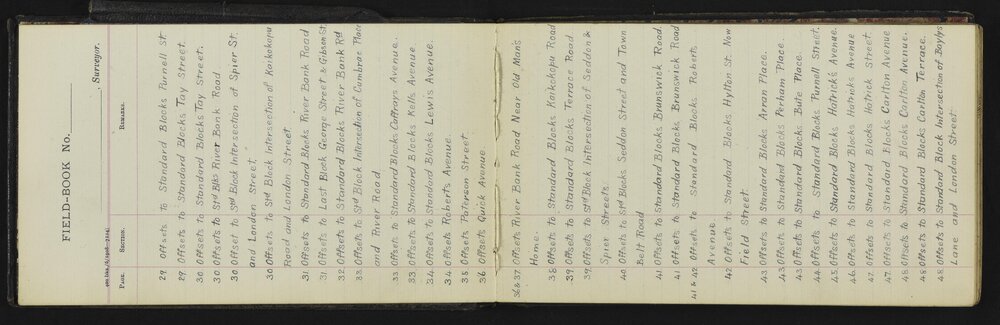 FIELD-BOOK No.
, Surveyor.
PAGE. SECTION. REMARKS.
29 Offsets to Standard Blocks Purnell St
29 Offsets to Standard Blocks Tay Street.
30 Offsets to Standard Blocks Tay Street.
30 Offsets to Std Blks River Bank Road
30 Offsets to Std Block Intersection of Spier St
and London Street
30 Offsets to Std Block Intersection of Kaikokopu
Road and London Street.
31 Offsets to Standard Blocks River Bank Road
31 Offsets to Last Block George Street & Gibson St
32 Offsets to Standard Blocks River Bank Rd
33 Offsets to Std Block Intersection of Cumbrae Place
and River Road
33 Offsets to Standard Blocks Caffrays Avenue.
33 Offsets to Standard Blocks Kells Avenue
34 Offsets to Standard Blocks Lewis Avenue
34 Offsets Roberts Avenue.
35 Offsets Patterson Street.
36 Offsets Quick Avenue
36 & 37 Offsets River Bank Road Near Old Man's
Home.
38 Offsets to Standard Blocks Kaikokopu Road
39 Offsets to Standard Blocks Terrace Road
39 Offsets to Std Block Intersection of Seddon &
Spier Streets.
40 Offsets to Std Blocks Seddon Street and Town
Belt Road
41 Offsets to Standard Blocks Brunswick Road.
41 Offsets to Standard Blocks Brunswick Road
41 & 42 Offsets to Standard Blocks Roberts
Avenue
42 Offsets to Standard Blocks Hylton St. Now
Field Street.
43 Offsets to Standard Blocks Arran Place.
43 Offsets to Standard Blocks Perham Place.
43 Offsets to Standard Blocks Bute Place.
44 Offsets to Standard Blocks Purnell Street.
45 Offsets to Standard Blocks Hatrick's Avenue.
46 Offsets to Standard Blocks Hatricks Avenue
47 Offsets to Standard Blocks Hatrick Street.
47 Offsets to Standard Blocks Carlton Avenue
48 Offsets to Standard Blocks Carlton Avenue.
48 Offsets to Standard Blocks Carlton Terrace.
48 Offsets to Standard Block Intersection of Baylys
Lane and London Street